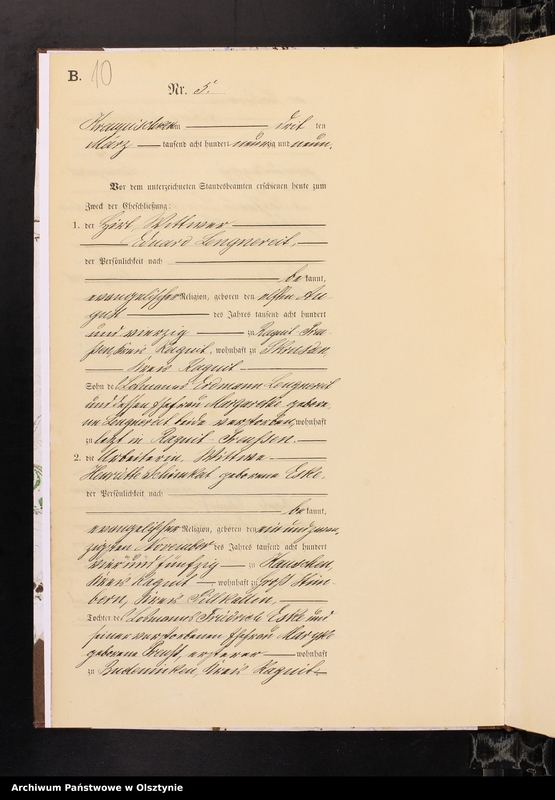 B. 10
Nr. 5.
Kraupischken am drei ten
März tausend acht hundert neunzig und neun.
Vor dem unterzeichneten Standesbeamten erschienen heute zum
Zweck der Eheschließung:
1. der Hirt Wittwer
Eduard Lengnereit,
der Persönlichkeit nach
be kannt,
evangelischer Religion, geboren den elften Au-
gust des Jahres tausend acht hundert
und vierzig zu Ragnit Preu-
ßen, Kreis Ragnit, wohnhaft zu
Kreis Ragnit
Sohn des Losmanns Erdmann Lengnereit
und dessen Ehefrau Margarethe gebore-
ne Lengnereit beide verstorben, wohnhaft
zu letzt in Ragnit Preussen.
2. die Arbeiterin, Wittwe
Henriette Schimkat geborene Eske,
der Persönlichkeit nach
be kannt,
evangelischer Religion, geboren den ein und zwan-
zigsten November des Jahres tausend acht hundert
vier und fünfzig zu Kauschen,
Kreis Ragnit, wohnhaft zu Groß
Kreis Pillkallen,
Tochter des Losmanns Friedrich Eske und
seiner verstorbenen Ehefrau
geborene Preuß, ersterer wohnhaft
zu Budeninken, Kreis Ragnit
Archiwum Państwowe w Olsztynie